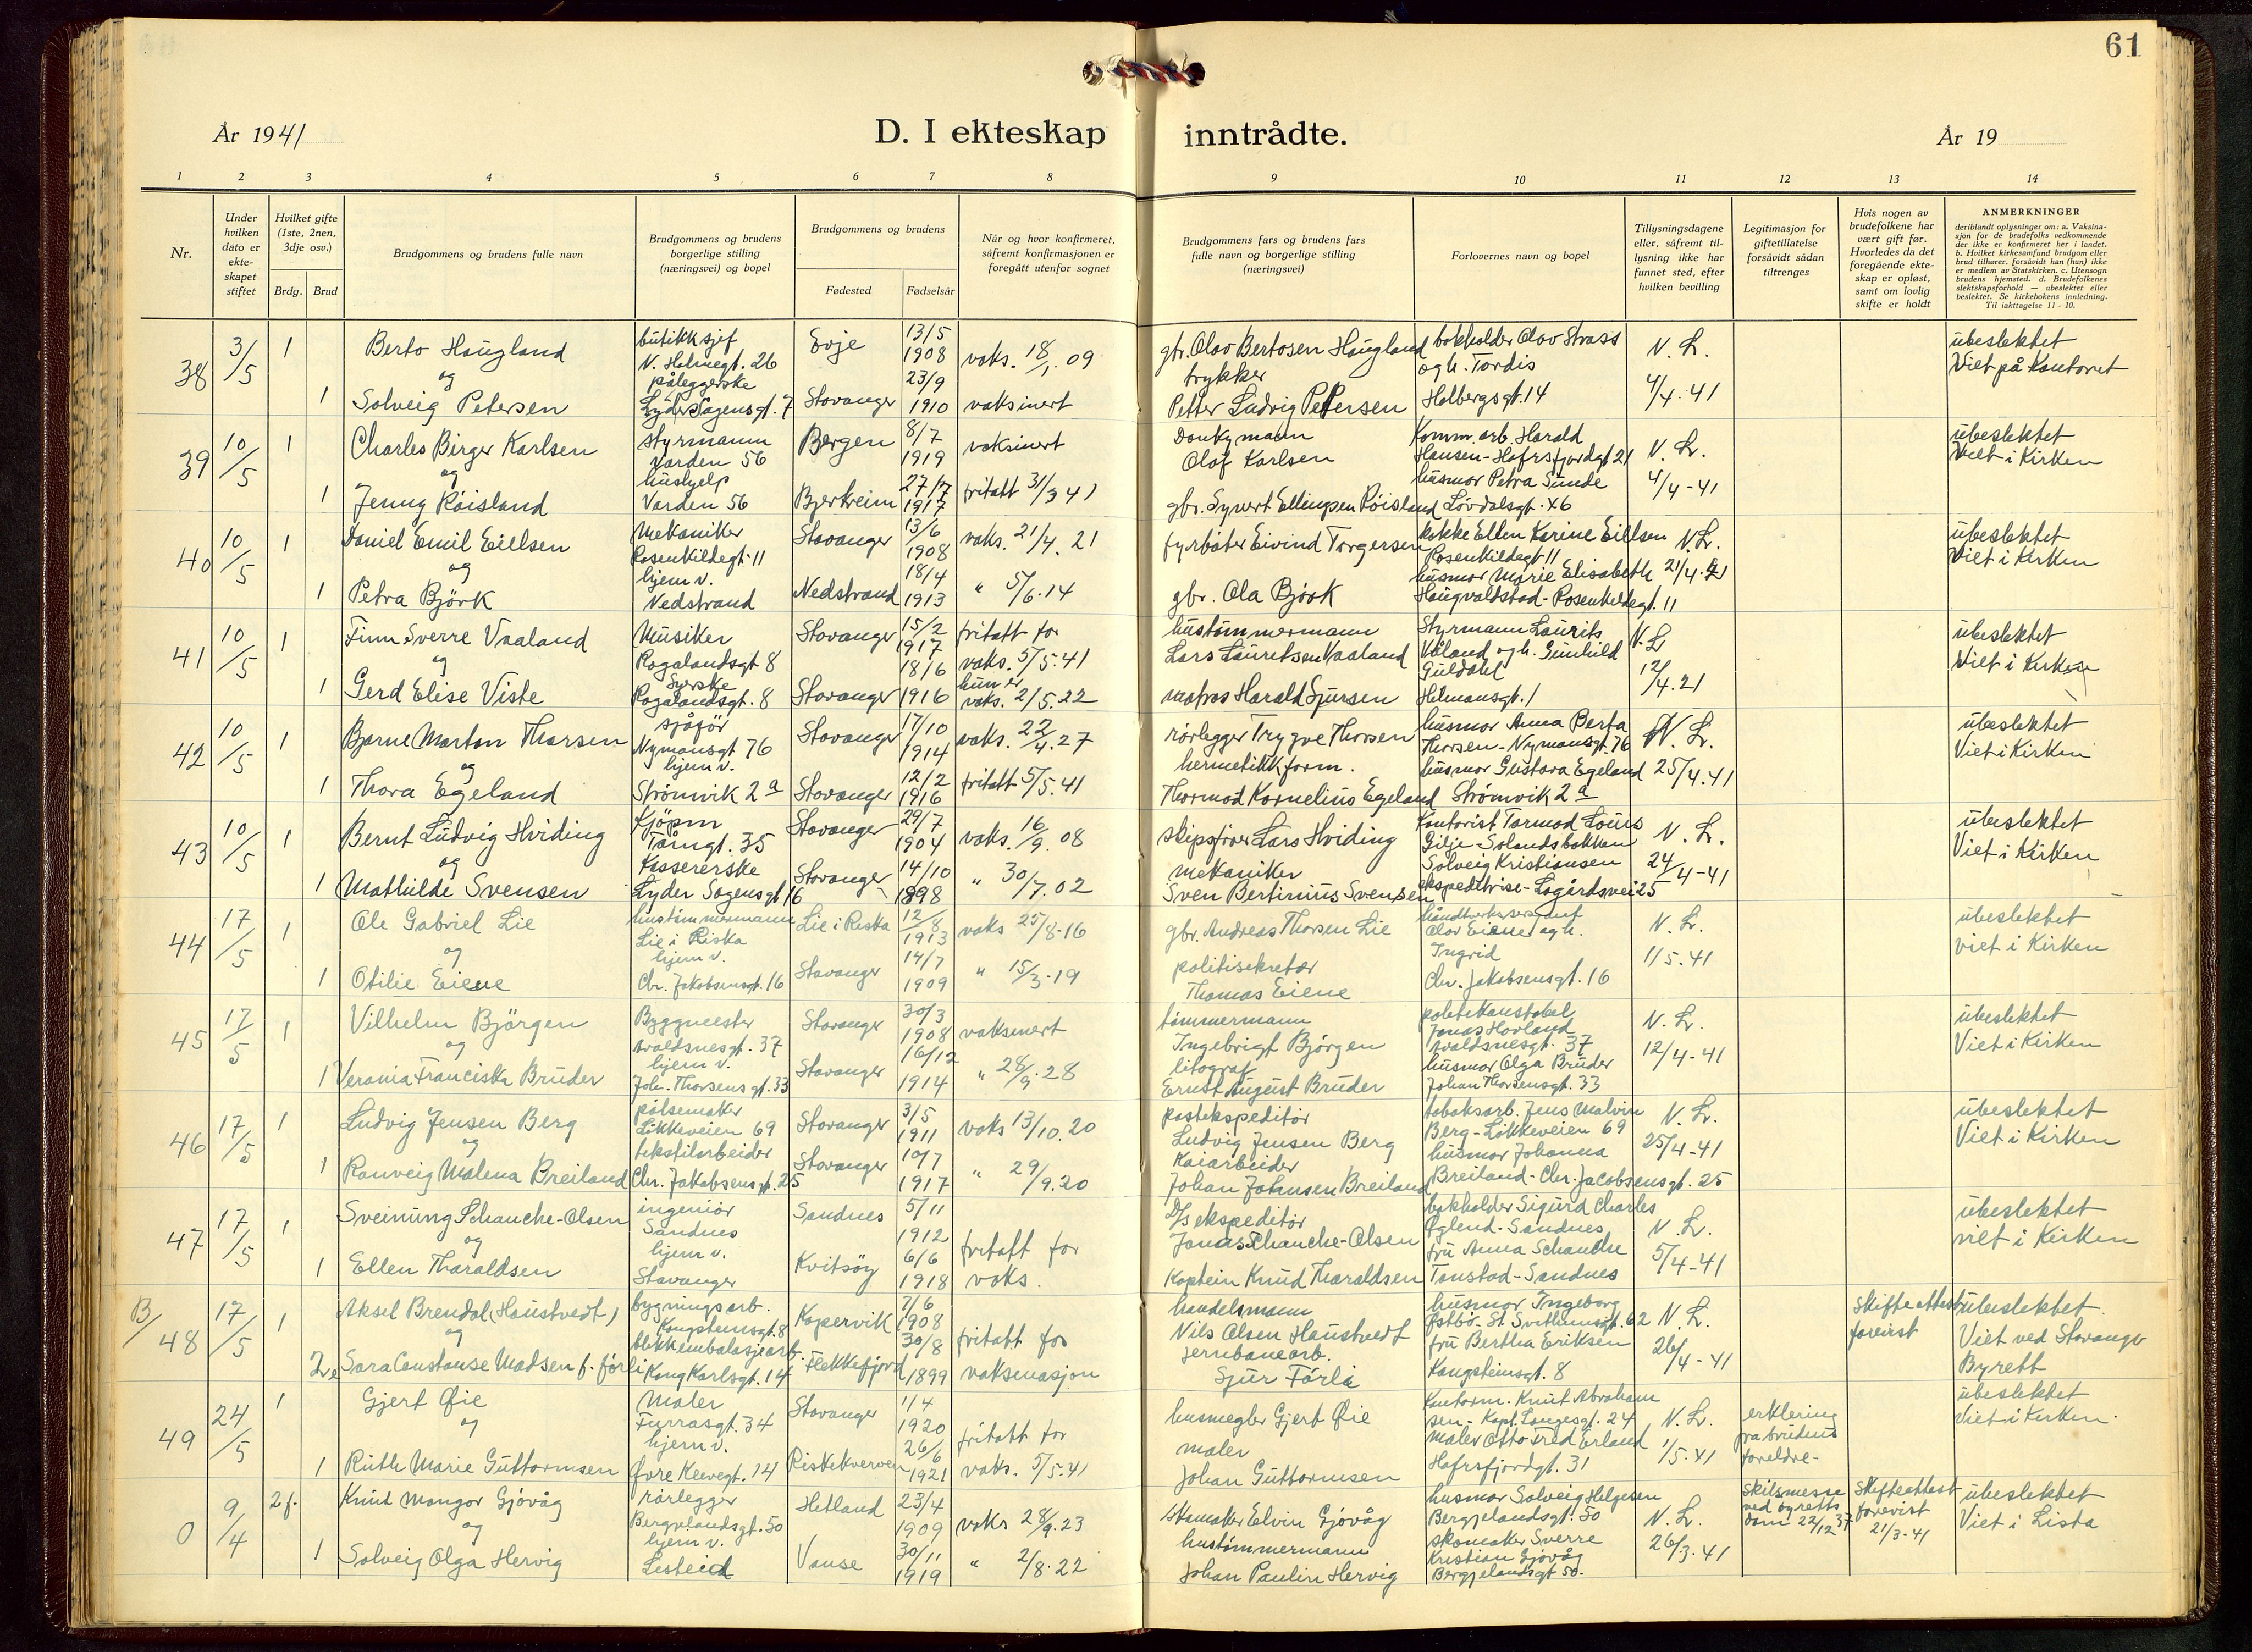 61
År 1941
D. I ekteskap inntrådte.
År 19
1 2 3 4 5 6 7 8 9 10 11 12 13 14
Nr.
Under hvilken dato er ekte-skapet stiftet
Hvilket gifte (1ste, 2nen, 3dje osv.)
Brdg. Brud
Brudgommens og brudens fulle navn
Brudgommens og brudens borgerlige stilling (næringsvei) og bopel
Brudgommens og brudens
Fødested Fødselsår
Når og hvor konfirmeret, såfremt konfirmasjonen er foregått utenfor sognet
Brudgommens fars og brudens fars fulle navn og borgerlige stilling (næringsvei)
Forlovernes navn og bopel
Tillysningsdagene eller, såfremt til-lysning ikke har funnet sted, efter hvilken bevilling
Legitimasjon for giftetillatelse forsåvidt sådan tiltrenges
Hvis nogen av brudefolkene har vært gift før. Hvorledes da det foregående ekte-skap er opløst, samt om lovlig skifte er holdt
ANMERKNINGER
deriblandt oplysninger om: a. Vaksina-sjon for de brudefolks vedkommende der ikke er konfirmeret her i landet. b. Hvilket kirkesamfund brudgom eller brud tilhører, forsåvidt han (hun) ikke er medlem av Statskirken. c. Utensogn brudens hjemsted. d. Brudefolkenes slektskapsforhold — ubeslektet eller beslektet. Se kirkebokens innledning. Til iakttagelse 11 - 10.
38 3/5 1 Berto Haugland butikksjef V. Holmegt. 26 Evje 13/5 1908 vaks. 18/1. 09 gbr. Olav Bertosen Haugland bokholder Olav Strass og h. Tordis N. L. ubeslektet Viet på Kontoret
og
1 Solveig Petersen påleggerske Lyder Sagensgt. 7 Stavanger 23/9 1910 vaksinert trykker Petter Ludvig Petersen Holbergsgt. 14 4/4. 41
39 10/5 1 Charles Birger Karlsen styrmann Varden 56 Bergen 8/7 1919 vaksinert Donkymann Olaf Karlsen Komm. arb. Harald Hansen - Hafrsfjordgt 21 N. L. ubeslektet Viet i Kirken
og
1 Jenny Röisland hushjelp Varden 56 Bjerkreim 27/7 1917 fritatt 31/3 41 gbr. Syvert Ellingsen Röisland husmor Petra Sunde Lövdalsgt. 46 4/4 - 41
40 10/5 1 Daniel Emil Eiellsen Mekaniker Rosenkildegt. 11 Stavanger 13/6 1908 vaks. 21/4. 21 fyrböter Eivind Torgersen kokke Ellen Karine Eiellsen Rosenkildegt 11 N. L. ubeslektet Viet i Kirken
og
1 Petra Björk hjem v. Nedstrand Nedstrand 18/4 1913 " 5/6. 14 gbr. Ola Björk husmor Marie Elisabeth Haugvaldstad - Rosenkildegt. 11 21/4.
41 10/5 1 Finn Sverre Vaaland Musiker Rogalandsgt 8 Stavanger 15/2 1917 fritatt for vaks. 5/5. 41 hustömmermann Lars Lauritsen Vaaland Styrmann Laurits Våland og h. Gunhild N. L. ubeslektet Viet i Kirken
og
1 Gerd Elise Viste Syerske Rogalandsgt. 8 Stavanger 18/6 1916 hun er vaks. 2/5. 22 matros Harald Sjursen Guldahl Helmansgt. 1 12/4. 21
42 10/5 1 Bjarne Morton Thorsen sjåför Nymansgt 76 Stavanger 17/10 1914 vaks. 22/4. 27 rörlegger Trygve Thorsen husmor Anna Berta Thorsen - Nymansgt. 76 N. L. ubeslektet Viet i Kirken
og
1 Thora Egeland hjem v. Strömvik 2a Stavanger 12/2 1916 fritatt 5/5. 41 hermetikkform. Thormod Kornelius Egeland husmor Gustava Egeland Strömvik 2a 25/4. 41
43 10/5 1 Bernt Ludvig Hviding Kjöpm Tårngt. 35 Stavanger 29/7 1904 vaks. 16/9. 08 skipsförer Lars Hviding Kontorist Tormod Louis Gilje - Solandsbakken N. L. ubeslektet Viet i Kirken
og
1 Mathilde Svensen Kassererske Lyder Sagensgt 16 Stavanger 14/10 1898 " 30/7. 02 mekaniker Sven Bertinius Svensen Solveig Kristiansen ekspeditrise - Lagårdsvei 25 24/4 - 41
44 17/5 1 Ole Gabriel Lie hustömmermann Lie i Riska Lie i Riska 12/8 1913 vaks 25/8. 16 gbr. Andreas Thorsen Lie håndverkssersjant Olav Eiene og h. N. L. ubeslektet viet i Kirken
og
1 Otilie Eiene hjem v. Chr. Jakobsensgt. 16 Stavanger 14/7 1909 " 15/3. 19 politisekretær Thomas Eiene Ingrid Chr. Jakobsensgt. 16 1/5. 41
45 17/5 1 Vilhelm Björgen Byggmester Avaldsnesgt. 37 Stavanger 30/3 1908 vaksinert tömmermann Ingebrigt Björgen politikonstabel Jonas Hovland Avaldsnesgt. 37 N. L. ubeslektet Viet i Kirken
og
1 Verania Franciska Bruder hjem v. Joh. Thorsens gt. 33 Stavanger 16/12 1914 " 28/9. 28 litograf Ernst August Bruder husmor Olga Bruder Johan Thorsensgt. 33 12/4 - 41
46 17/5 1 Ludvig Jensen Berg pölsemaker Lökkeveien 69 Stavanger 3/5 1911 vaks 13/10. 20 postekspeditör Ludvig Jensen Berg tobaksarb. Jens Malvin Berg - Lökkeveien 69 N. L. ubeslektet Viet i Kirken
og
1 Ranveig Malena Breiland tekstilarbeider Chr. Jakobsensgt. 25 Stavanger 10/7 1917 " 29/9. 20 Kaiarbeider Johan Johnsen Breiland husmor Johanna Breiland - Chr. Jacobsensgt. 25 25/4 - 41
47 17/5 1 Sveinung Schanche-Olsen ingeniör Sandnes Sandnes 5/11 1912 fritatt for D/s ekspeditör Jonas Schanche-Olsen bokholder Sigurd Charles Öglend - Sandnes N. L. ubeslektet viet i Kirken
og
1 Ellen Tharaldsen hjem v. Stavanger Kvitsöy 6/6 1918 vaks. Kaptein Knud Tharaldsen fru Anna Schanche Tonstad - Sandnes 5/4 - 41
B/48 17/5 1 Aksel Brendal (Haustvedt) bygningsarb. Kongsteinsgt. 8 Kopervik 7/6 1908 fritatt for handelsmann Nils Olsen Haustvedt husmor Ingeborg Östbö. St Svithunsgt. 62 N. L. Skifteattest forevist ubeslektet. Viet ved Stavanger Byrett
og
2. Sara Constanse Madsen f. Förli blekkembalasjearb. Kong Karlsgt. 14 Flekkefjord 30/8 1899 vaksinasjon jernbanearb. Sjur Förli fru Bertha Eriksen Kongsteinsgt. 8 26/4 - 41
49 24/5 1 Gjert Øie Maler Furrasgt. 34 Stavanger 1/4 1920 fritatt for husmegler Gjert Øie Kontorm. Knut Abrahamsen - Kapt. Langesgt. 24 N. L. erklering fra brudens foreldre - ubeslektet Viet i Kirken.
og
1 Ruth Marie Guttormsen hjem v. Øvre Kleivegt. 14 Riskekverven 26/6 1921 vaks. 5/5. 41 maler Johan Guttormsen maler Otto Fred Erland Hafrsfjordgt. 31 1/5. 41
0 9/4 2 f. Knut Mangor Gjövåg rörlegger Bergjelandsgt. 50 Hetland 23/4 1909 vaks 28/9. 23 Skomaker Elvin Gjövåg husmor Solveig Helgesen Bergjelandsgt. 50 N. L. Skilsmesse ved byretts dom 22/12 37 Skifteattest forevist 21/3. 41 ubeslektet Viet i Lista
og
1 Solveig Olga Hervig hjem v. Listeid Vanse 30/11 1919 " 2/8. 22 hustömmermann Johan Paulin Hervig skomaker Sverre Kristian Gjövåg Bergjelandsgt 50. 26/3. 41